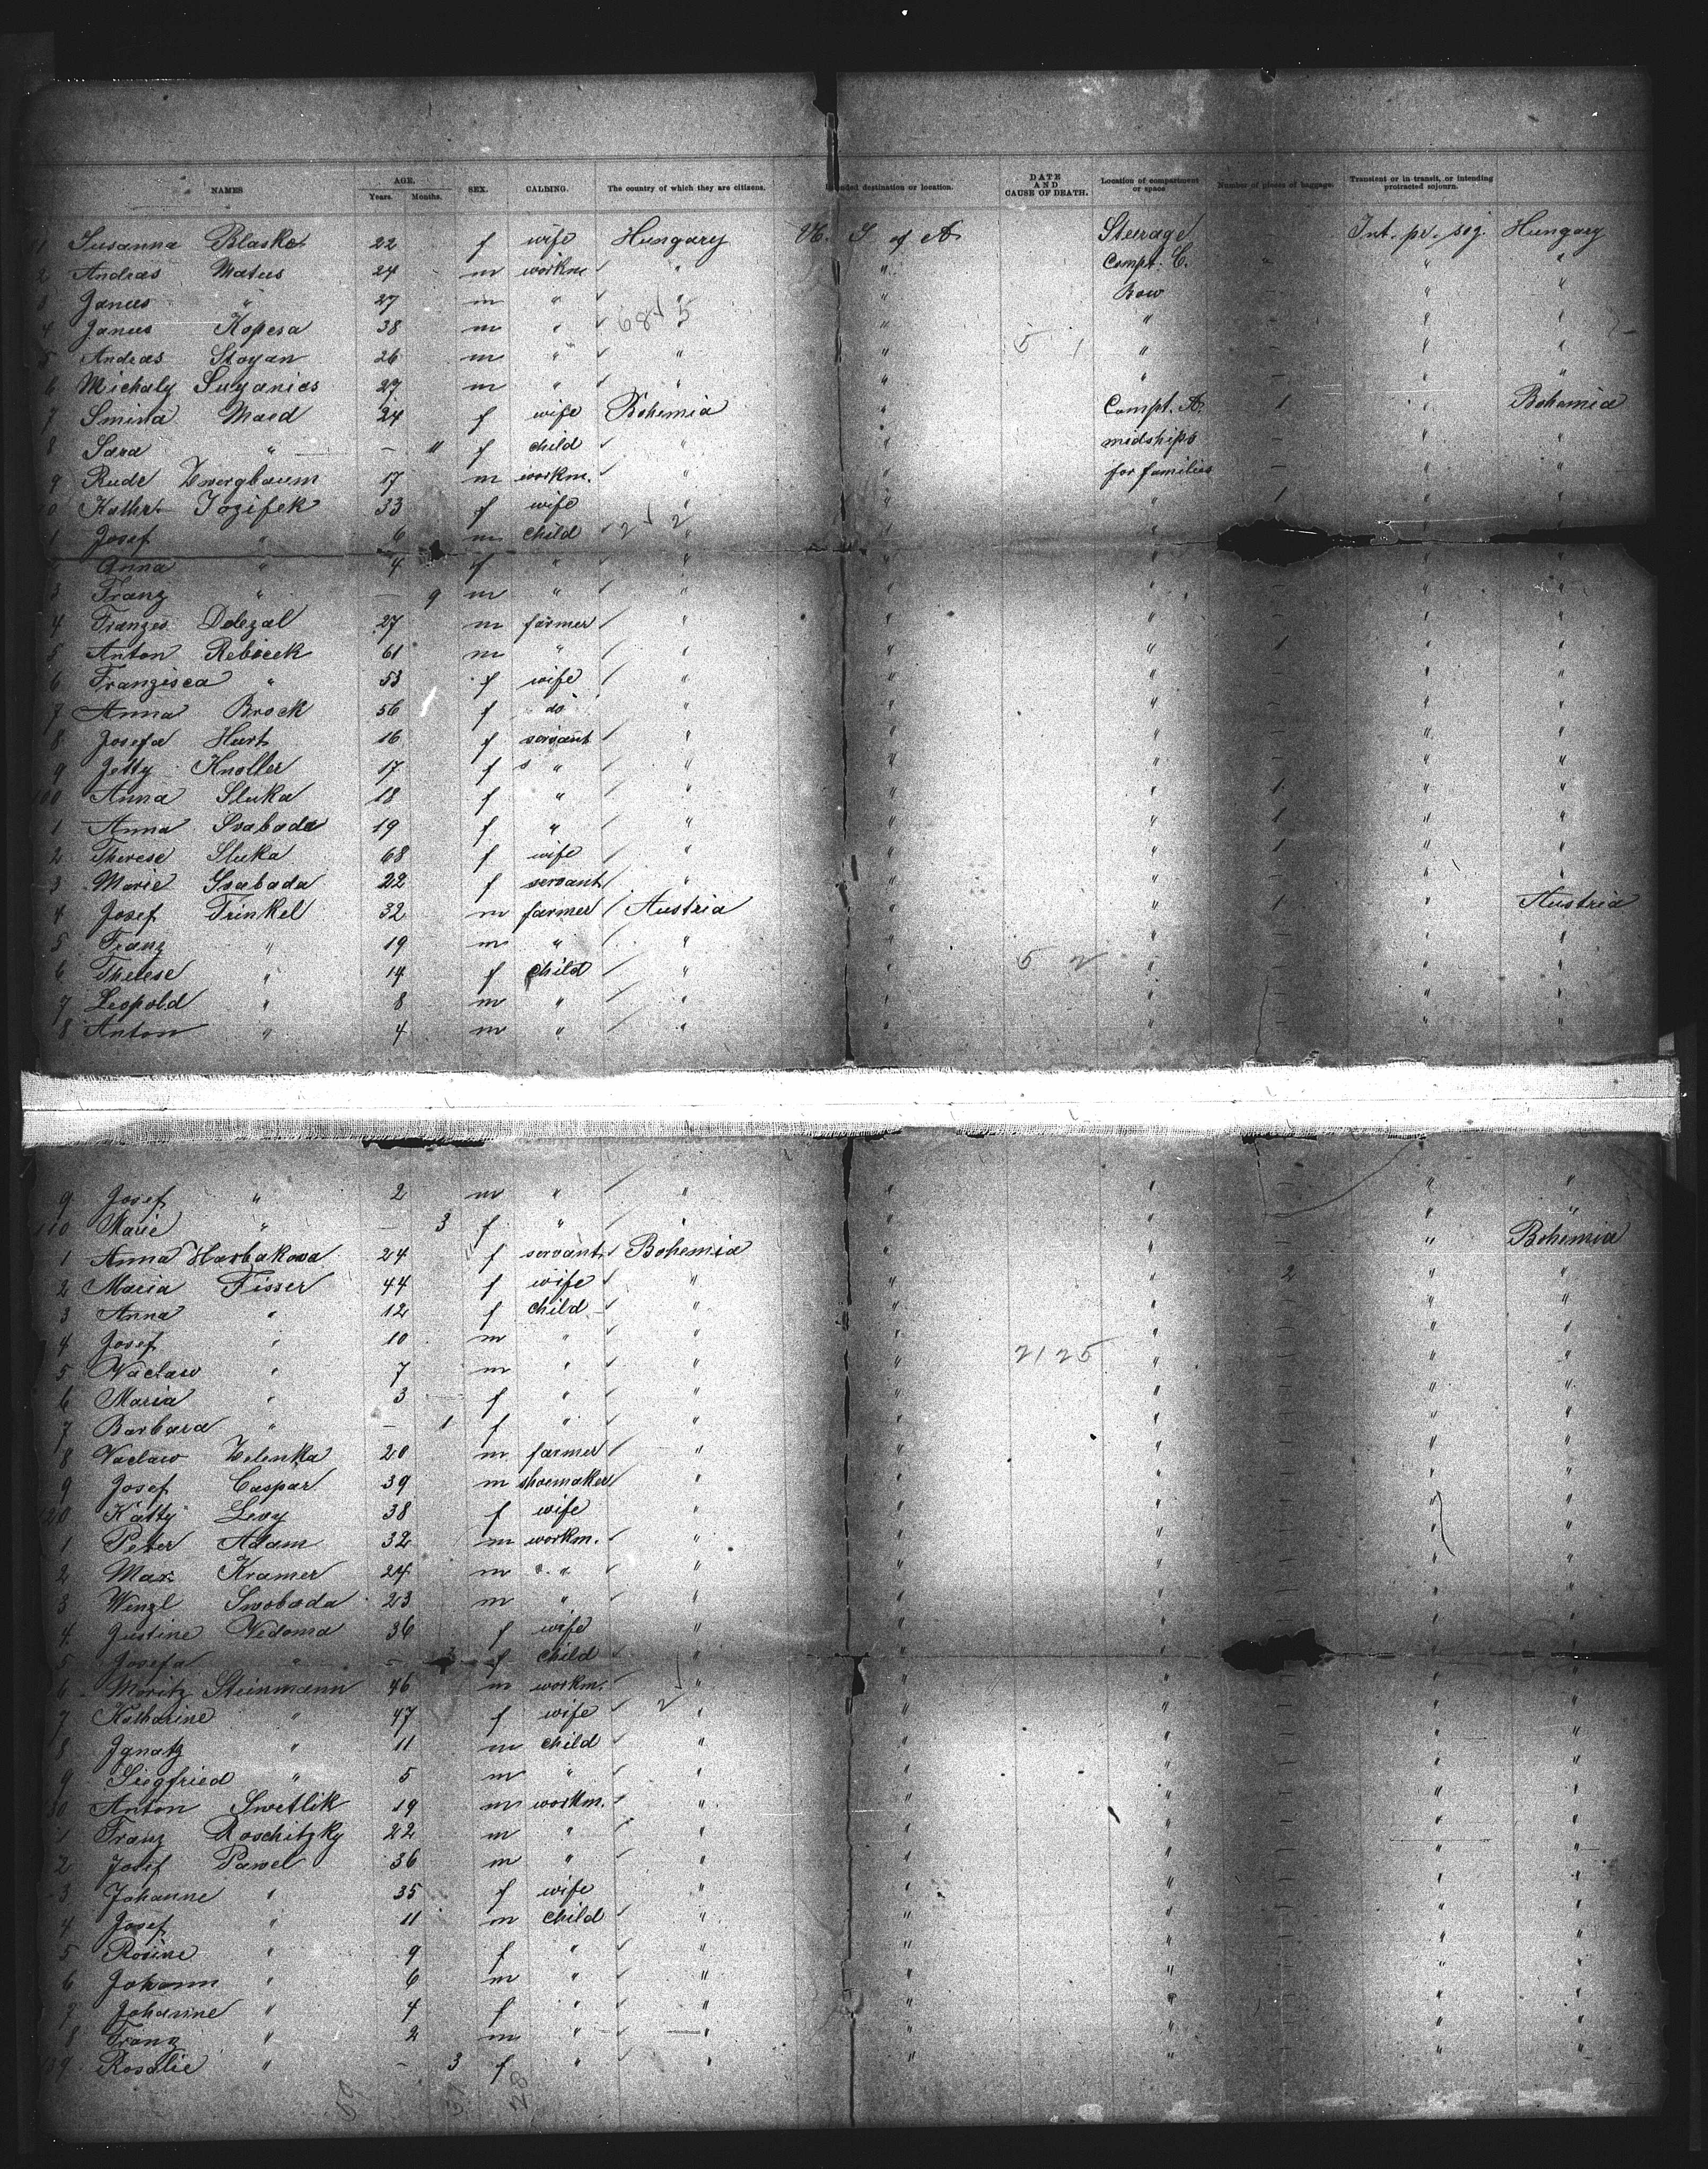 NAMES AGE. Years. Months. SEX. CALLING. The country of which they are citizens. Intended destination or location. DATE AND CAUSE OF DEATH. Location of compartment or space Number of pieces of baggage. Transient or in transit, or intending protracted sojourn.
1 Susanna Blasket 22 f wife Hungary U. S of A Steerage - Int. pr. soj. Hungary
2 Andras Matus 24 m workm " " Compt. C. " " "
3 Janus " 27 m " " " Bow - " "
4 Janus Kopesa 38 m " " " " - " "
5 Andras Stoyan 26 m " " " " - " "
6 Michaly Suyanics 27 m " " " " - " "
7 Smina Maed 24 f wife Bohemia " Compt. A. 1 " Bohemia
8 Sara " - 11 f child " " midships - " "
9 Rude Zwergbaum 17 m workm. " " for families - " "
90 Kathr. Jozifek 33 f wife " " " 1 " "
1 Josef " 6 m child " " " " "
Anna " 4 f " " " " " "
3 Franz " - 9 m " " " " - " "
4 Franzes Dolezal 27 m farmer " " " - " "
5 Anton Reborek 61 m " " " " 1 " "
6 Franzisca " 53 f wife " " " - " "
7 Anna Brock 56 f do " " " - " "
8 Josefa Hart 16 f servant " " " - " "
9 Jetty Knoller 17 f " " " " - " "
100 Anna Sluka 18 f " " " " 1 " "
1 Anna Svaboda 19 f " " " " 1 " "
2 Therese Sluka 68 f wife " " " 1 " "
3 Marie Svaboda 22 f servant " " " - " "
4 Josef Trinkel 32 m farmer Austria " " 1 " Austria
5 Franz " 19 m " " " " - " "
6 Therese " 14 f child " " 5 2 " - " "
7 Leopold " 8 m " " " " - " "
8 Anton " 4 m " " " " - " "
9 Josef " 2 m " " " " - " "
110 Marie " - 3 f " " " " - " "
1 Anna Harbakova 24 f servant Bohemia " " - " Bohemia
2 Maria Fisser 44 f wife " " " 2 " "
3 Anna " 12 f child " " " - " "
4 Josef " 10 m " " " " - " "
5 Vaclaw " 7 m " " " 2125 " - " "
6 Maria " 3 f " " " " - " "
7 Barbara " - 1 f " " " " - " "
8 Vaclaw Zelenka 20 m farmer " " " - " "
9 Josef Caspar 39 m shoemaker " " " - " "
120 Katty Levy 38 f wife " " " - " "
1 Peter Adam 32 m workm. " " " - " "
2 Max Kramer 24 m " " " " - " "
3 Wenzl Swoboda 23 m " " " " - " "
4 Justine Nedoma 36 f wife " " " - " "
5 Josefa " - 3 f child " " " " "
6 Moritz Steinmann 46 m workm. " " " - " "
7 Katharine " 47 f wife " " " - " "
8 Ignatz " 11 m child " " " - " "
9 Siegfried " 5 m " " " " - " "
30 Anton Swetlik 19 m workm. " " " - " "
1 Franz Roschitzky 22 m " " " " - " "
2 Josef Pawel 36 m " " " " - " "
3 Johanne " 35 f wife " " " - " "
4 Josef " 11 m child " " " - " "
5 Rosine " 9 f " " " " - " "
6 Johann " 6 m " " " " - " "
7 Johanne " 4 f " " " " " "
8 Franz " 2 m " " " " " "
139 Rosalie " - 3 f " " " " " "